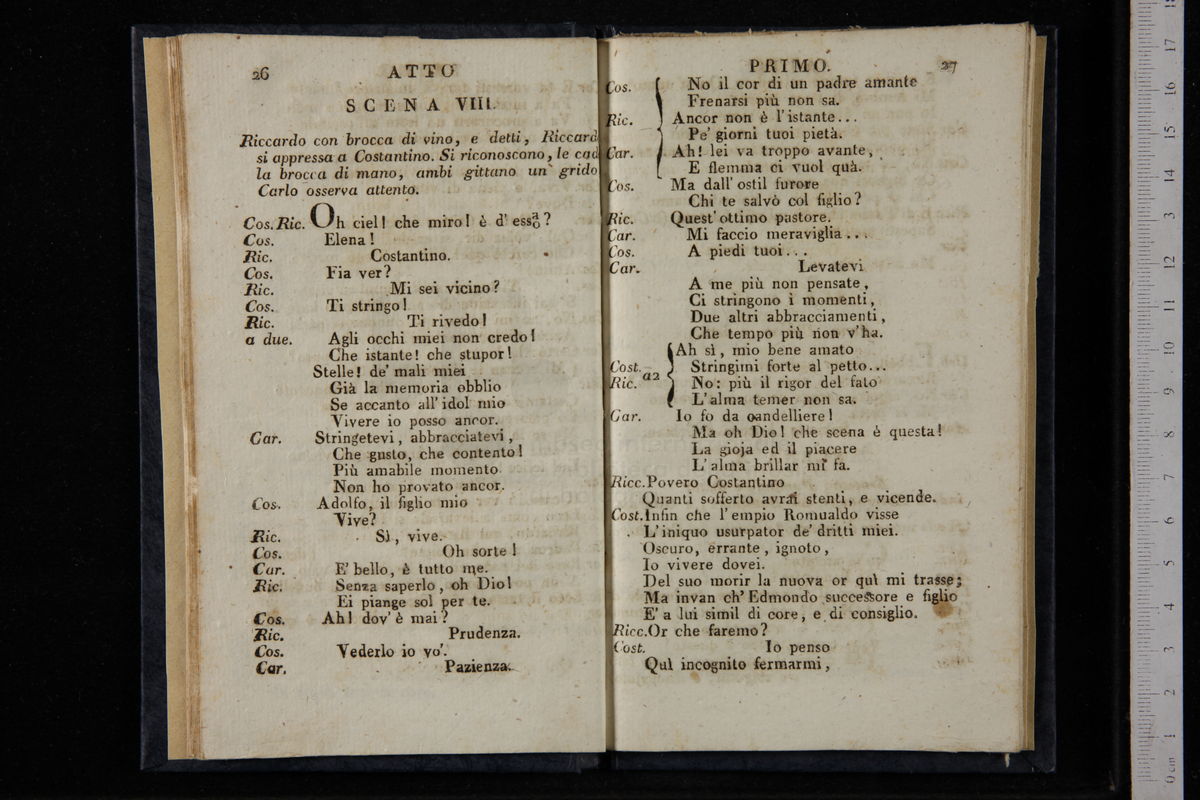 26
ATTO
SCENA VIII.
Riccardo con brocca di vino, e detti, Riccard
si appressa a Costantino. Si riconoscono, le cad
la brocca di mano, ambi gittano un grido
Carlo osserva attento.
Cos. Ric. Oh ciel! che miro! è d' essa/o?
Cos. Elena!
Ric. Costantino.
Cos. Fia ver?
Ric. Mi sei vicino?
Cos. Ti stringo!
Ric. Ti rivedo!
a due. Agli occhi miei non credo!
Che istante! che stupor!
Stelle! de' mali miei
Già la memoria obblio
Se accanto all' idol mio
Vivere io posso ancor.
Car. Stringetevi, abbracciatevi,
Che gusto, che contento!
Più amabile momento
Non ho provato ancor.
Cos. Adolfo, il figlio mio
Vive?
Ric. Sì, vive.
Cos. Oh sorte!
Car. E' bello, è tutto me.
Ric. Senza saperlo, oh Dio!
Ei piange sol per te.
Cos. Ah! dov' è mai?
Ric. Prudenza.
Cos. Vederlo io vo'.
Car. Pazienza.
PRIMO.
27
Cos. No il cor di un padre amante
Frenarsi più non sa.
Ric. Ancor non è l'istante...
Pe' giorni tuoi pietà.
Car. Ah! lei va troppo avante,
E flemma ci vuol quà.
Cos. Ma dall' ostil furore
Chi te salvò col figlio?
Ric. Quest' ottimo pastore.
Car. Mi faccio meraviglia...
Cos. A piedi tuoi...
Car. Levatevi
A me più non pensate,
Ci stringono i momenti,
Due altri abbracciamenti,
Che tempo più non v'ha.
Ah sì, mio bene amato
Cost. Stringimi forte al petto...
Ric. a2 No: più il rigor del fato
L'alma temer non sa.
Car. Io fo da candelliere!
Ma oh Dio! che scena è questa!
La gioja ed il piacere
L' alma brillar mi fa.
Ricc. Povero Costantino
Quanti sofferto avrai stenti, e vicende.
Cost. Infin che l' empio Romualdo visse
L' iniquo usurpator de' dritti miei.
Oscuro, errante, ignoto,
Io vivere dovei.
Del suo morir la nuova or quì mi trasse;
Ma invan ch' Edmondo successore e figlio
E' a lui simil di core, e di consiglio.
Ricc. Or che faremo?
Cost. Io penso
Quì incognito fermarmi,
0 cm 1 2 3 4 5 6 7 8 9 10 11 12 13 14 15 16 17 18